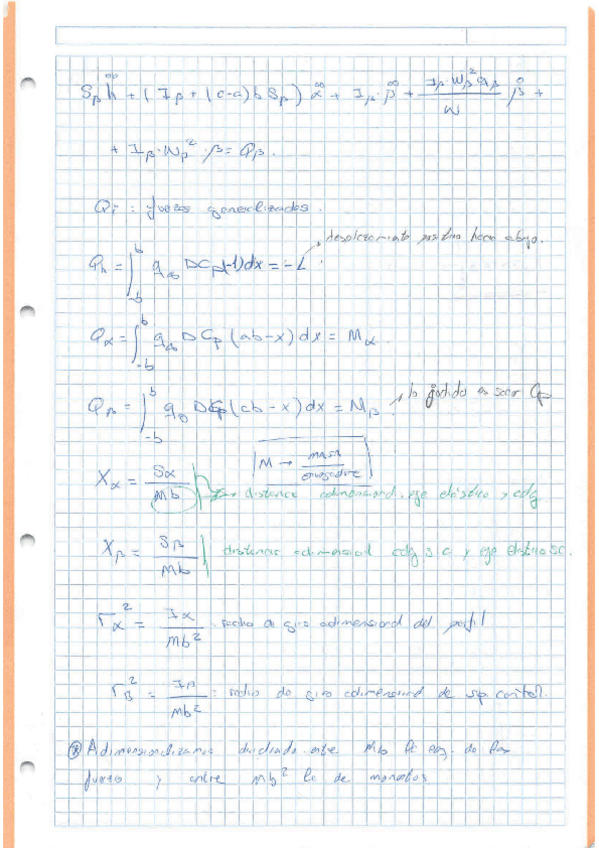 S_β ḧ + (I_β + (c-a) b S_β) α̈ + I_β · β̈ + (I_β · W_β² g_β / W) β̇ +
+ I_β · W_β² · β = Q_β .
Qi = fuerzas generalizadas .
desplazamiento positivo hacia abajo.
Q_h = ∫_{-b}^{b} q_∞ DC_p (-1) dx = -L .
Q_α = ∫_{-b}^{b} q_∞ DC_p (ab-x) dx = M_α .
Q_β = ∫_{-b}^{b} q_∞ DC_p (cb-x) dx = M_β → lo jodido es sacar C_p
X_α = S_α / Mb
M → masa / envergadura
distancia adimensional eje elástico y cdg.
X_β = S_β / Mb distancia adimensional cdg s.c y eje elástico sc.
r_α² = I_α / Mb² radio de giro adimensional del perfil
r_β² = I_β / Mb² = radio de giro adimensional de sup. control.
* Adimensionalizamos dividiendo entre Mb la ecq. de las
fuerzas y entre Mb² la de momentos